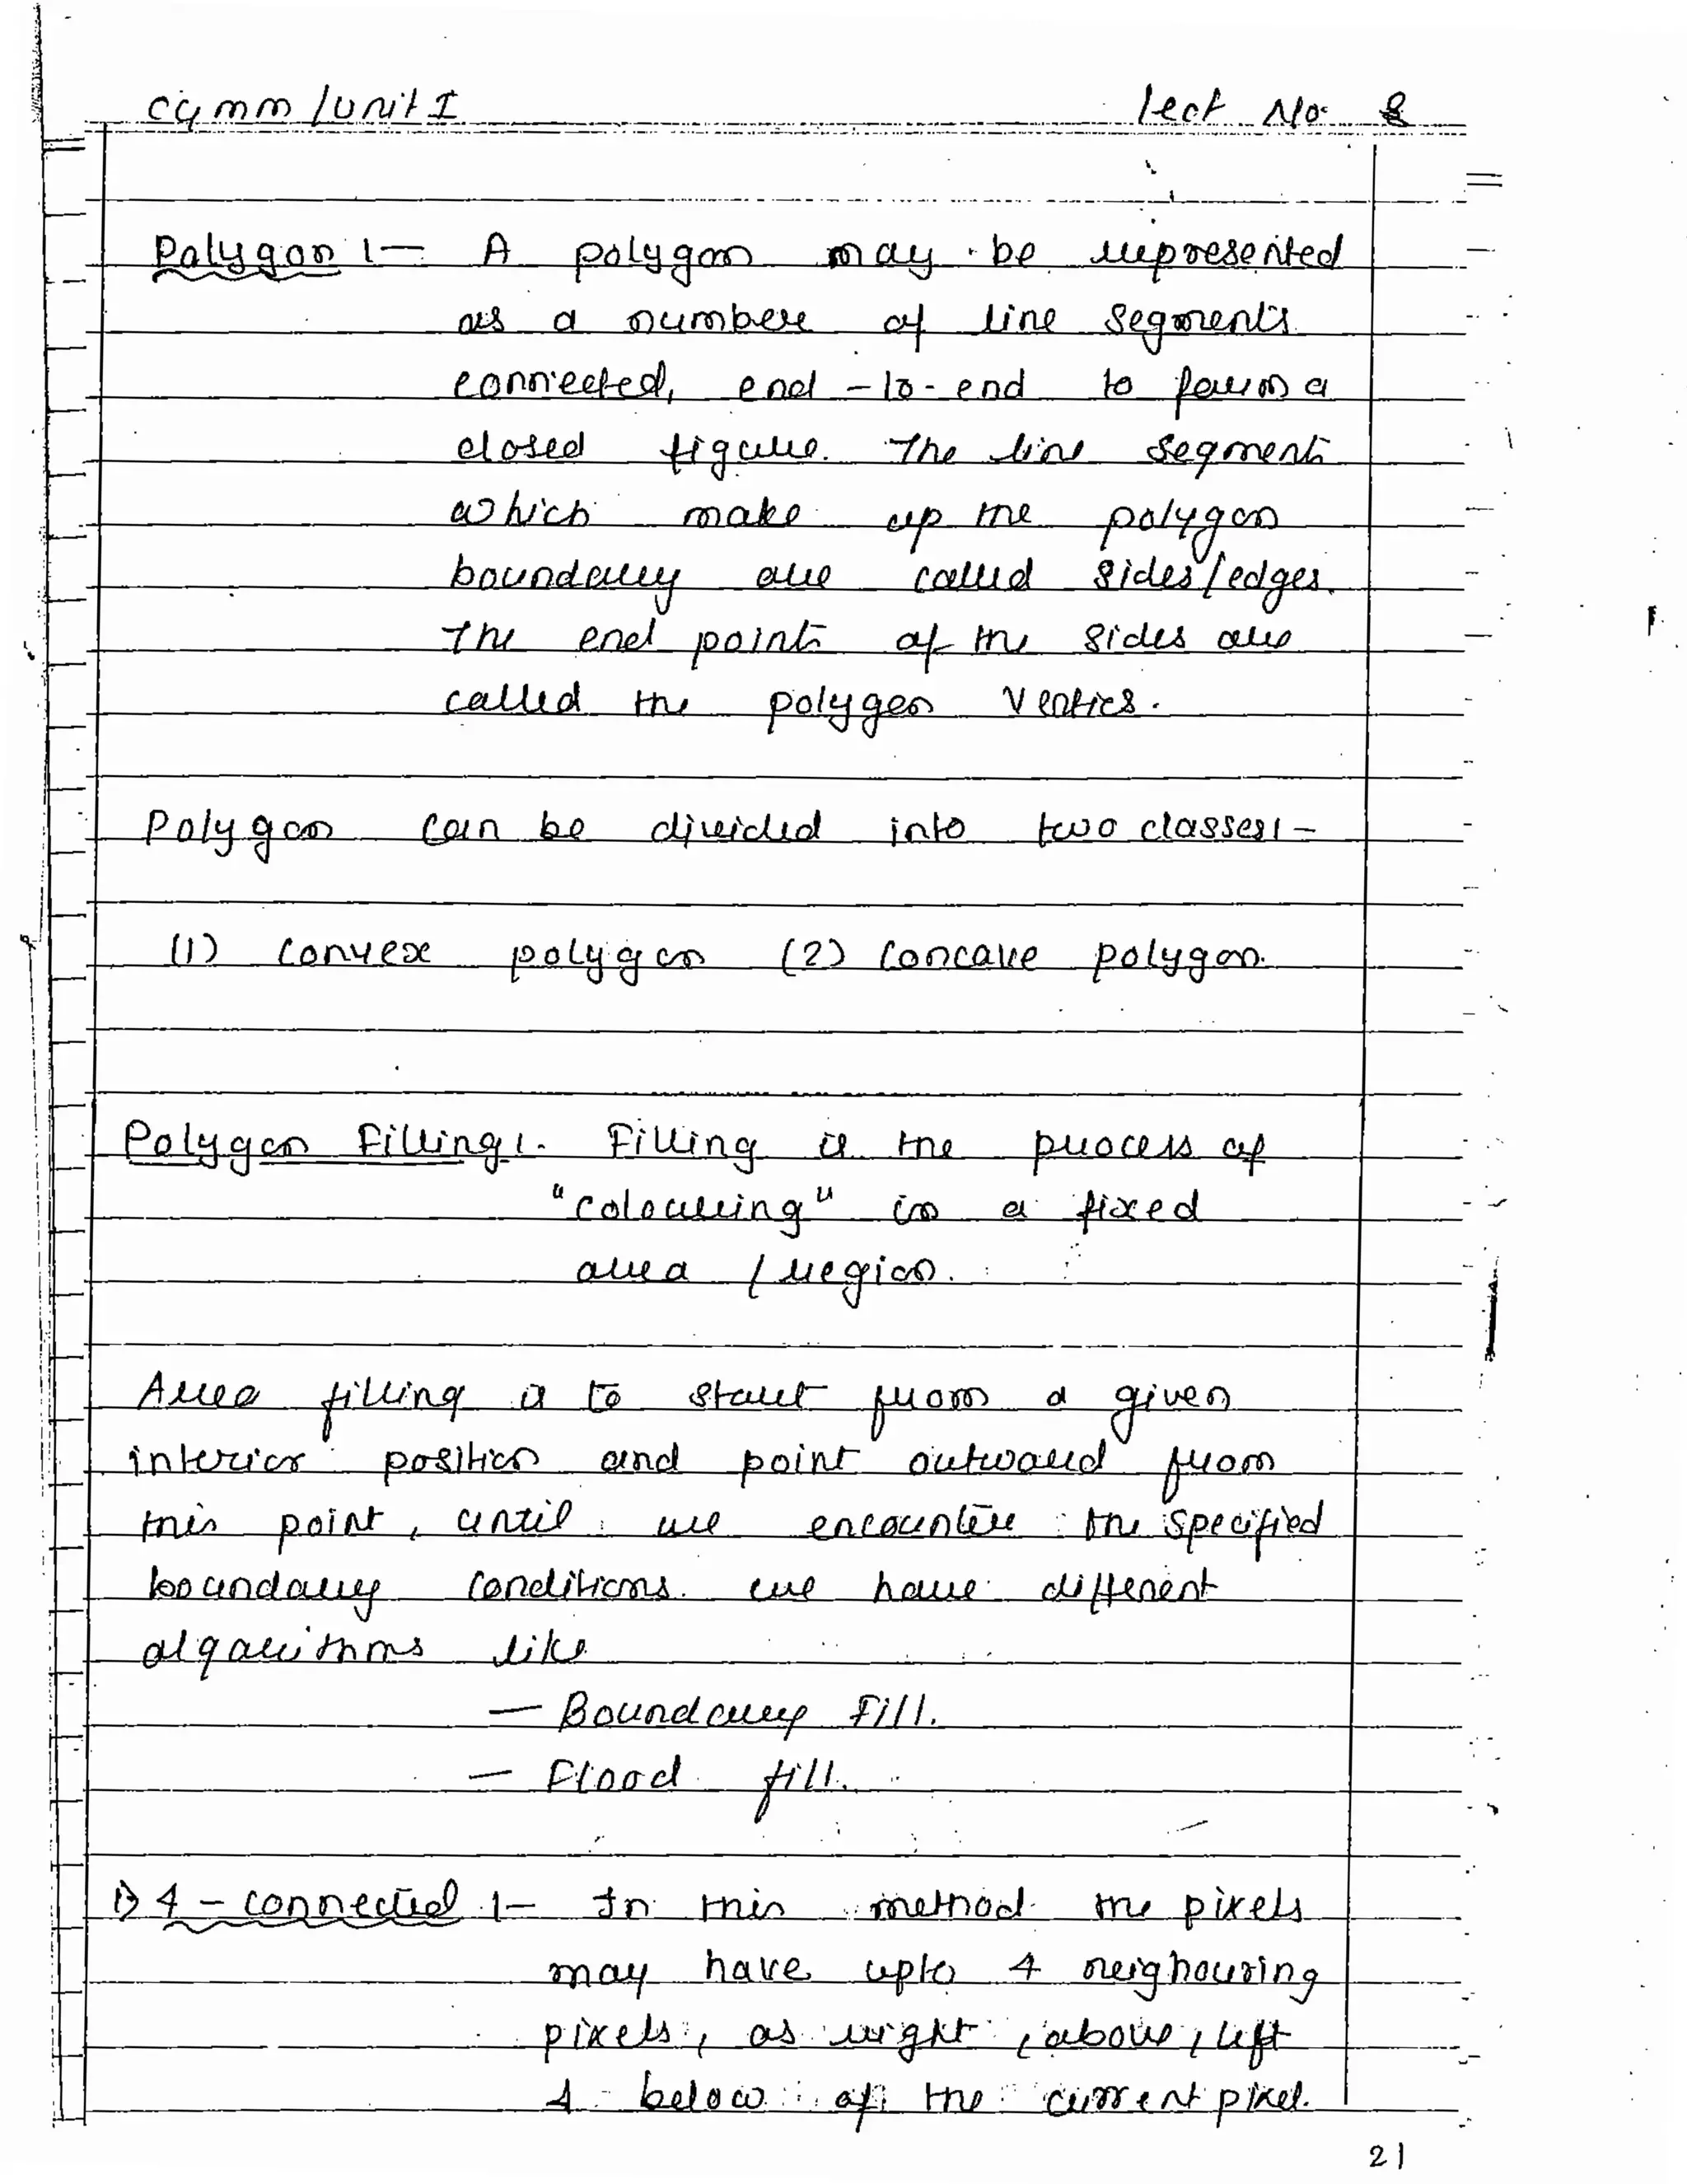 CGMM / Unit I Lect No. 8
Polygon :- A polygon may be represented
as a number of line segments
connected, end-to-end to form a
closed figure. The line segments
which make up the polygon
boundary are called sides/edges.
The end points of the sides are
called the polygon vertics.
Polygon can be divided into two classes:-
(1) Convex polygon (2) Concave polygon.
Polygon Filling:- Filling is the process of
"colouring" in a fixed
area / region.
Area filling is to start from a given
interior position and point outward from
this point, until we encounter the specified
boundary conditions. we have different
algorithms like
- Boundary Fill.
- Flood fill.
1) 4-connected :- In this method the pixels
may have upto 4 neighouring
pixels, as right, above, left
& below of the current pixel.
21